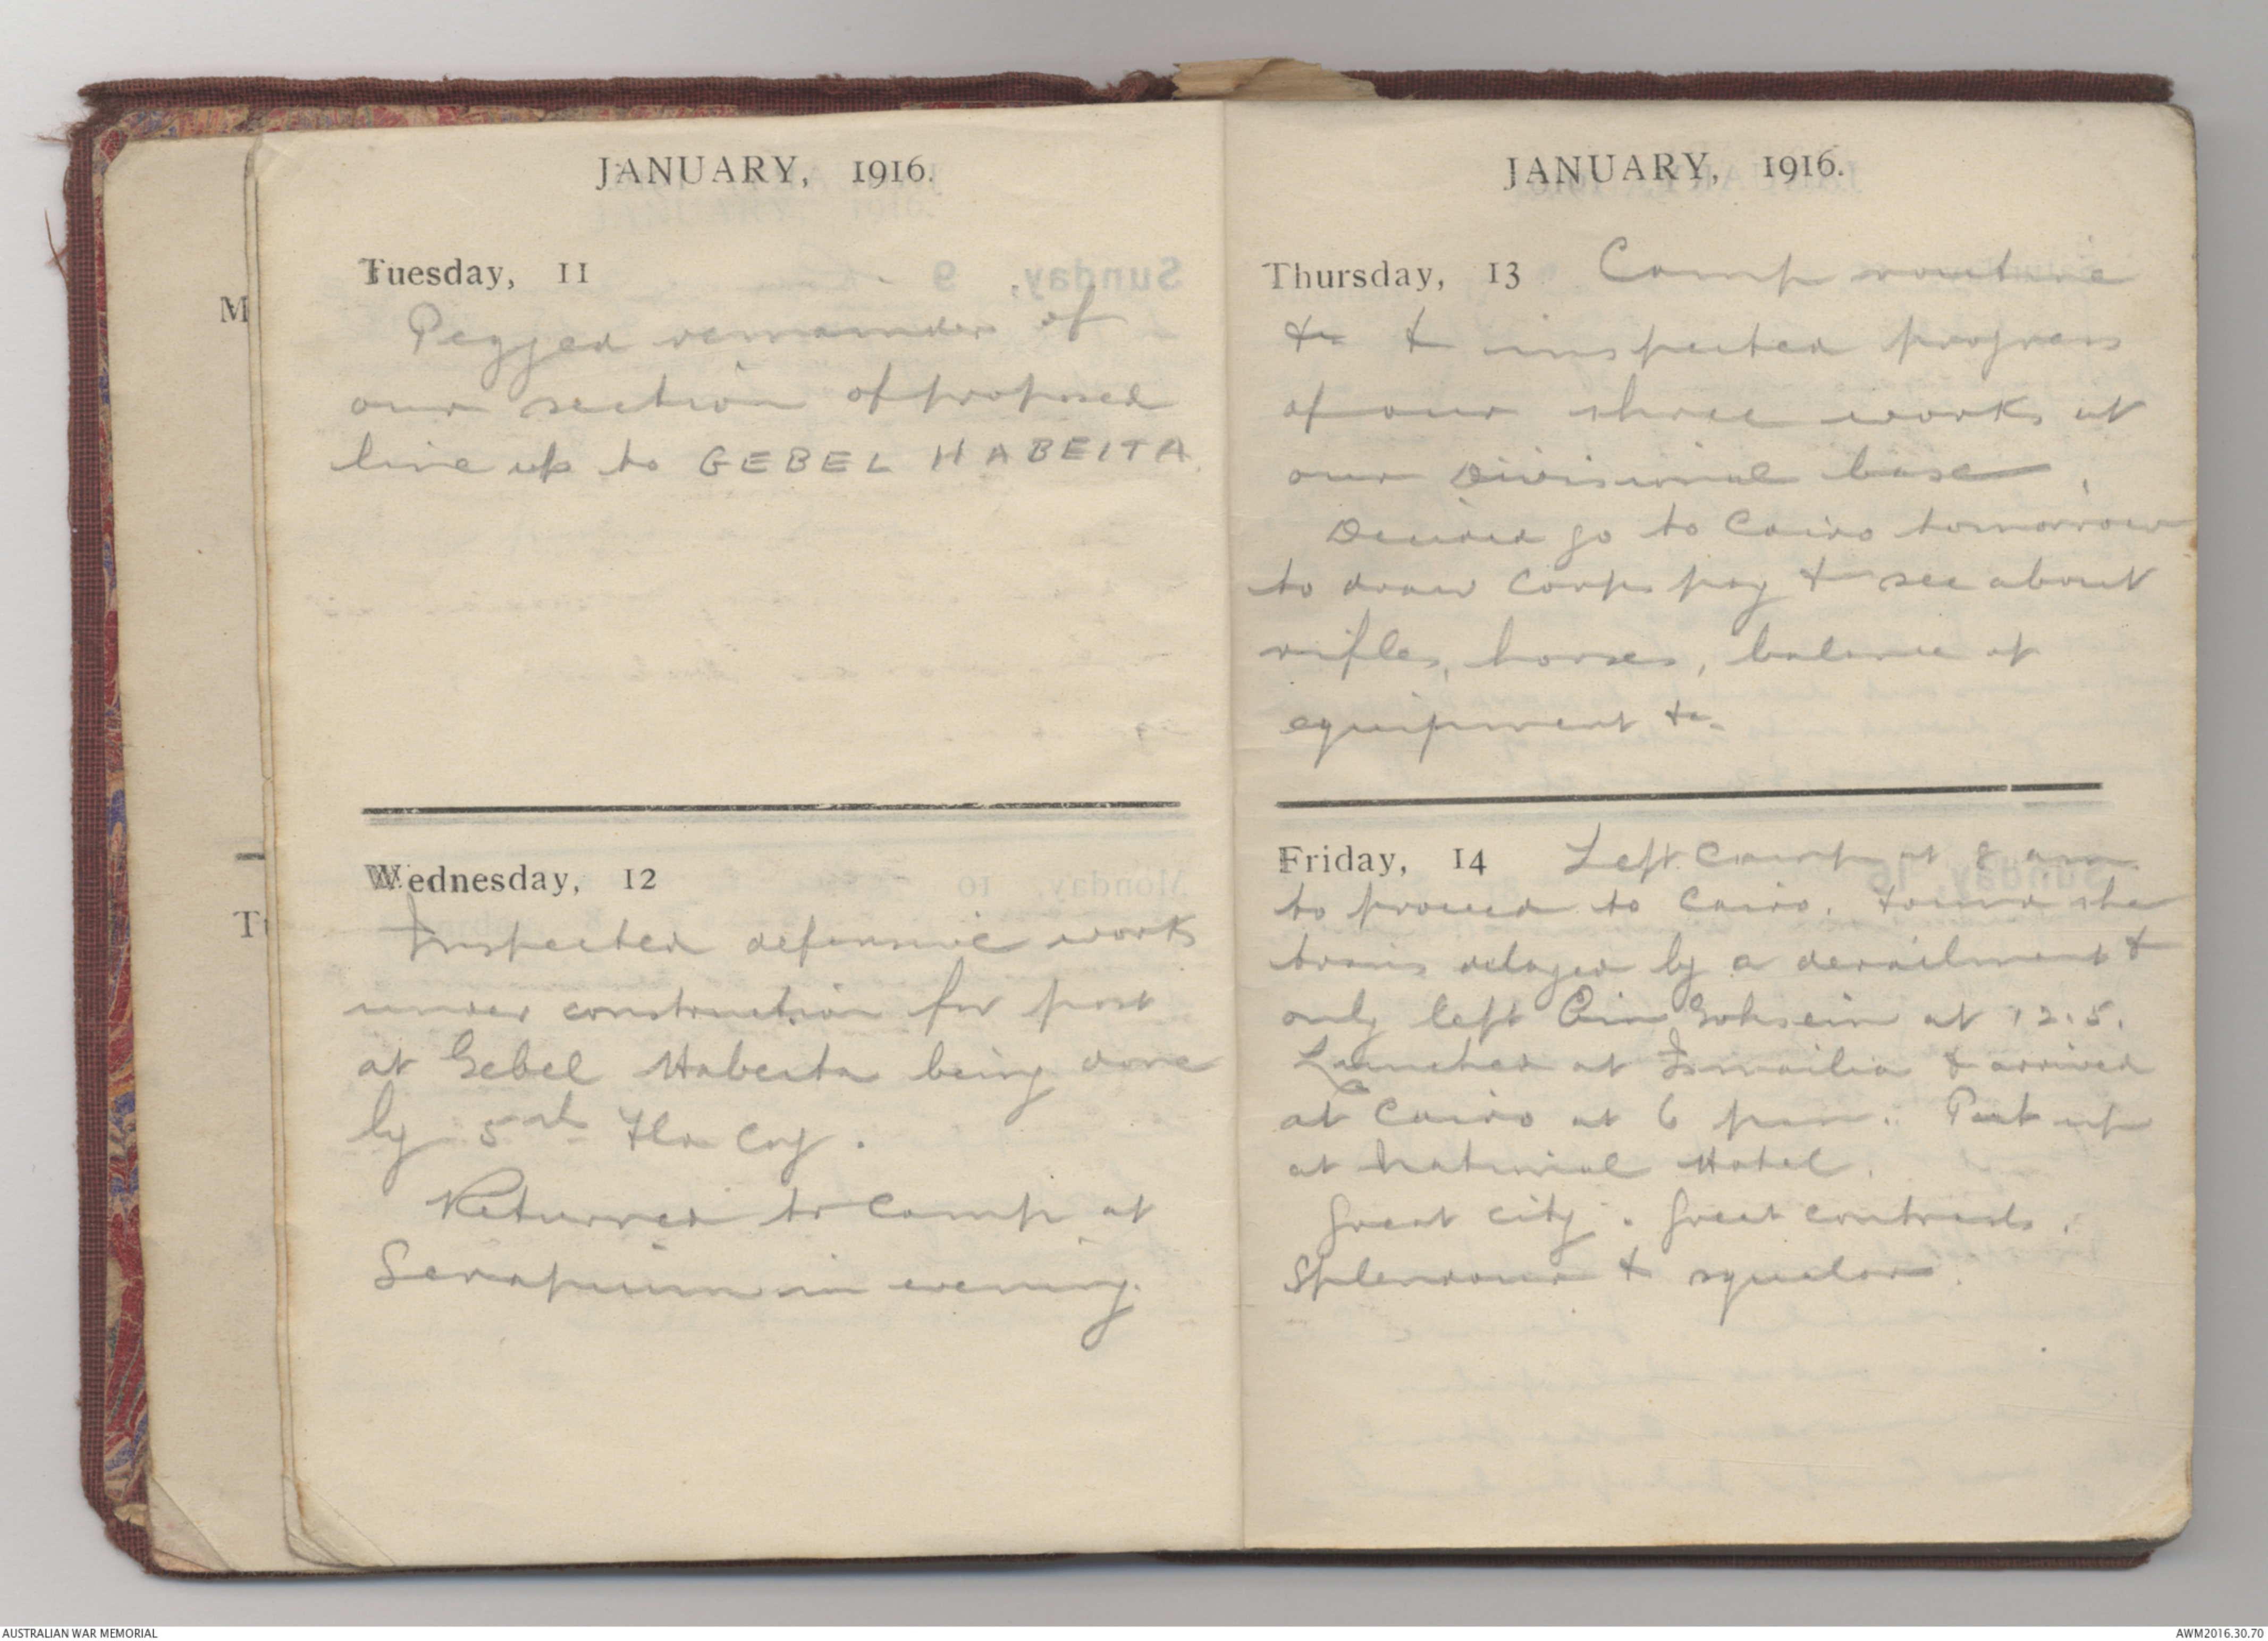 JANUARY, 1916.
Tuesday, 11
Pegged remainder of
our section of proposed
line up to GEBEL HABEITA.
Wednesday, 12
Inspected defensive work
under construction for post
at Gebel Habeita being done
by 5th Fld Coy.
Returned to Camp at
Serapeum in evening.
JANUARY, 1916.
Thursday, 13 Camp routine
&c & inspected progress
of our three works at
our Divisional base.
Decided go to Cairo tomorrow
to draw Corps pay & see about
rifles, horses, balance of
equipment &c.
Friday, 14 Left Camp at 8 am
to proceed to Cairo. Found the
trains delayed by a derailment &
only left at 12.5.
Lunched at Ismailia & arrived
at Cairo at 6 pm. Put up
at National Hotel.
Great city. Great contrasts.
Splendour & squalor.
M
T
AUSTRALIAN WAR MEMORIAL
AWM2016.30.70